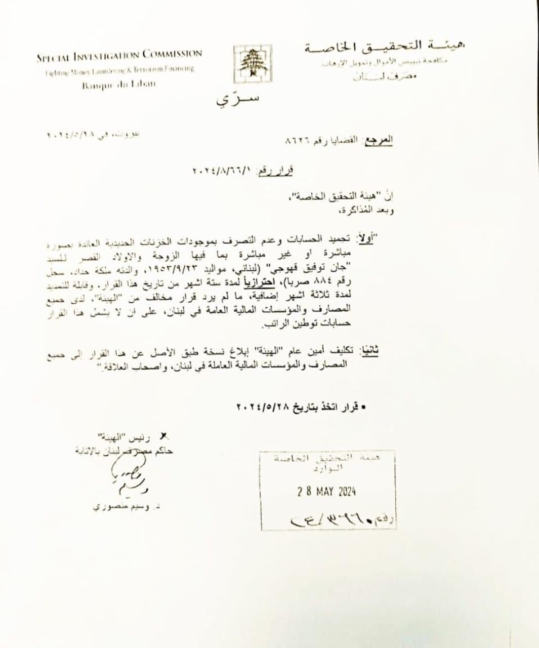 هيئة التحقيق الخاصة
مكافحة تبييض الأموال وتمويل الإرهاب
مصرف لبنان
SPECIAL INVESTIGATION COMMISSION
Fighting Money Laundering & Terrorism Financing
Banque du Liban
سري
بيروت، في ٢٠٢٤/٥/٢٨
المرجع: القضايا رقم ٨٦٢٦
قرار رقم: ٢٠٢٤/٨/٦٦/١
إن "هيئة التحقيق الخاصة"،
وبعد المذاكرة،
"أولاً: تجميد الحسابات وعدم التصرف بموجودات الخزنات الحديدية العائدة بصورة
مباشرة او غير مباشرة بما فيها الزوجة والاولاد القصر للسيد
"جان توفيق قهوجي" (لبناني، مواليد ١٩٥٣/٩/٢٣، والدته ملكة حداد، سجل
رقم ٨٨٤ صربا)، احترازياً لمدة ستة اشهر من تاريخ هذا القرار، وقابلة للتمديد
لمدة ثلاثة اشهر إضافية، ما لم يرد قرار مخالف من "الهيئة"، لدى جميع
المصارف والمؤسسات المالية العامة في لبنان، على ان لا يشمل هذا القرار
حسابات توطين الراتب.
ثانياً: تكليف أمين عام "الهيئة" إبلاغ نسخة طبق الأصل عن هذا القرار الى جميع
المصارف والمؤسسات المالية العاملة في لبنان، واصحاب العلاقة."
• قرار اتخذ بتاريخ ٢٠٢٤/٥/٢٨
رئيس "الهيئة"
حاكم مصرف لبنان بالانابة
د. وسيم منصوري
هيئة التحقيق الخاصة
الوارد
28 MAY 2024
رقم